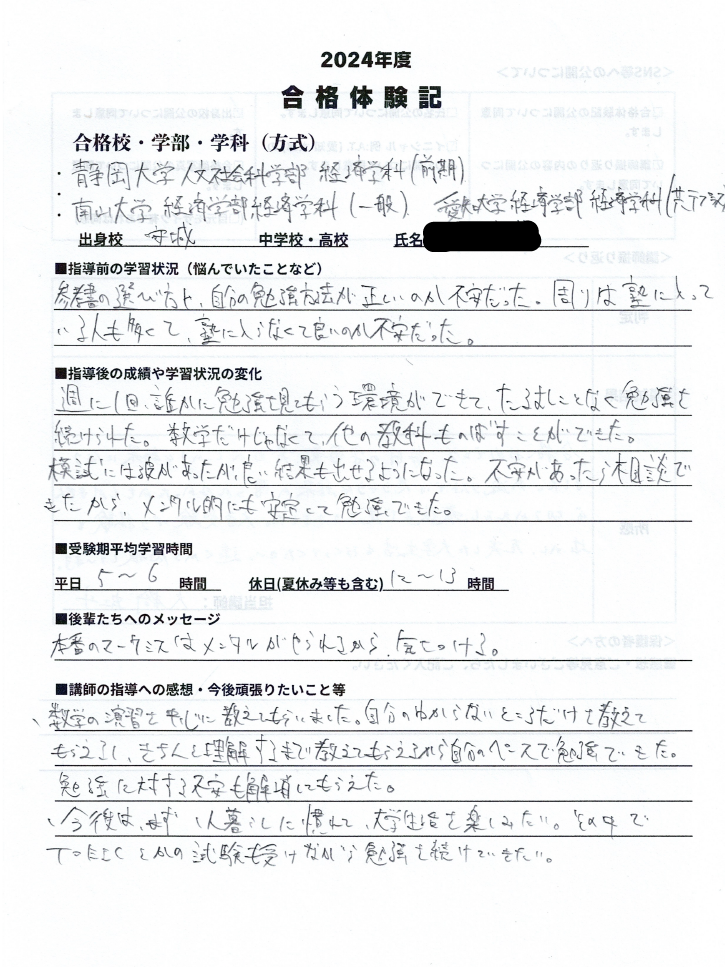 2024年度
合格体験記
合格校・学部・学科（方式）
・静岡大学人文社会科学部 経済学科(前期)
・南山大学 経済学部経済学科(一般) 愛知大学 経済学部 経済学科(共テ
出身校 安城 中学校・高校 氏名
■指導前の学習状況（悩んでいたことなど）
参考書の選び方や、自分の勉強方法が正しいのか不安だった。周りは塾に入って
いる人も多くて、塾に入らなくて良いのか不安だった。
■指導後の成績や学習状況の変化
週に1回、誰かに勉強を見てもらう環境ができて、たるむことなく勉強を
続けられた。数学だけじゃなくて、他の教科ものばすことができた。
模試には波があったが良い結果も出せるようになった。不安があったら相談で
きたから、メンタル的にも安定して勉強できた。
■受験期平均学習時間
平日 5〜6 時間 休日(夏休み等も含む) 12〜13 時間
■後輩たちへのメッセージ
本番のマークミスはメンタルがやられるから、気をつける。
■講師の指導への感想・今後頑張りたいこと等
、数学の演習を中心に教えてもらいました。自分のわからないところだけを教えて
もらえるし、きちんと理解するまで教えてもらえるから自分のペースで勉強できた。
勉強に対する不安も解消してもらえた。
、今後は、まず1人暮らしに慣れて、大学生活を楽しみたい。その中で
TOEICとかの試験も受けながら勉強を続けていきたい。